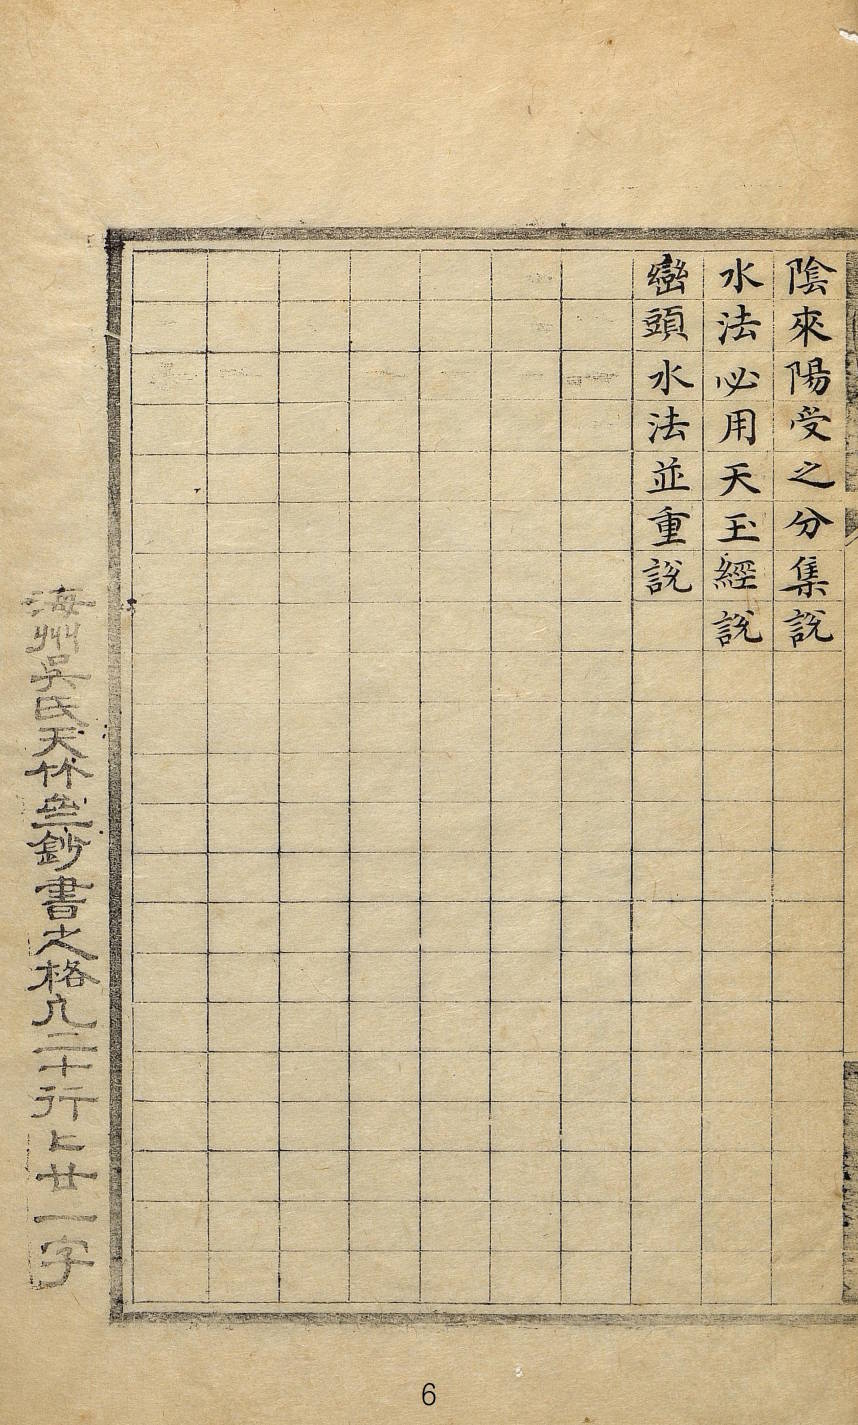 陰來陽受之分集説
水法必用天玉經説
巒頭水法並重説
海州吳氏天休㕘鈔書之格凡二十行=廿一字
6